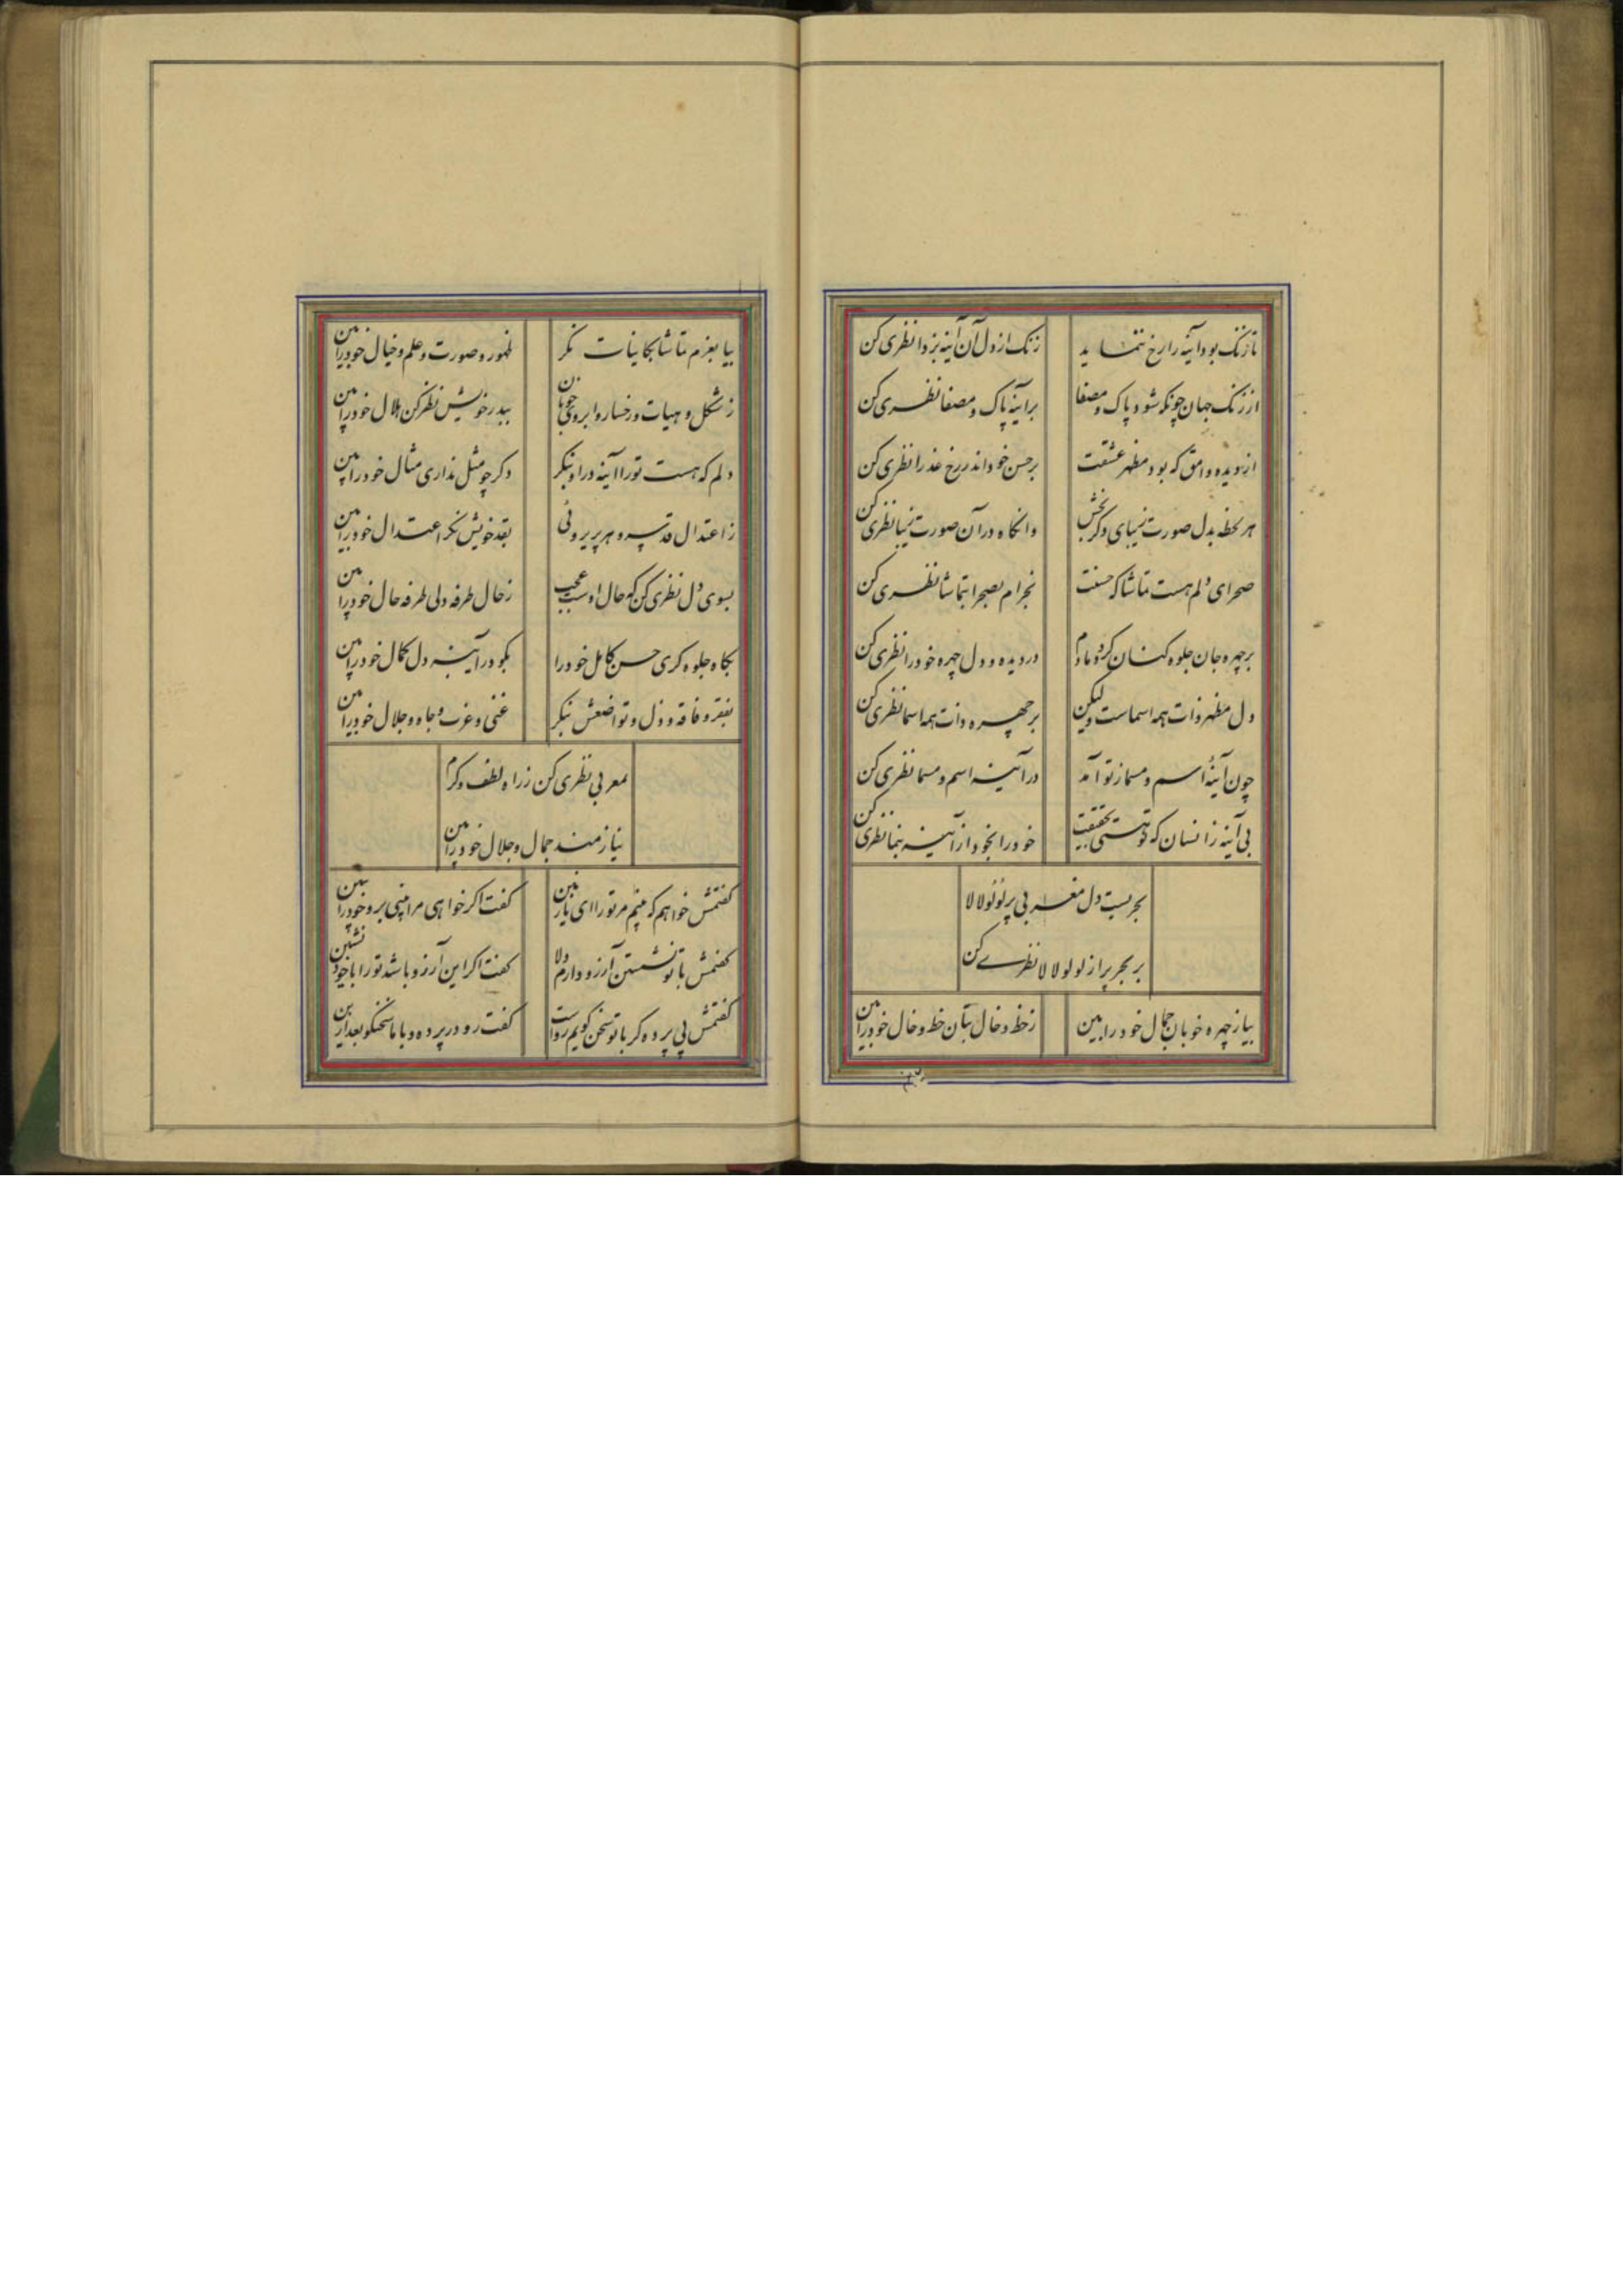 تا زنک بود آینه را رخ ننماید
زنک از دل آن آینه بزدا نظری کن
از زنک جهان چونکه شود پاک و مصفا
بر آینه پاک و مصفا نظری کن
از دیده وامق که بود مظهر عشقت
بر حسن خود اندر رخ عذرا نظری کن
هر لحظه بدل صورت زیبای دکر بخش
وانکاه در آن صورت زیبا نظری کن
صحرای دلم هست تماشاکه حسنت
بخرام بصحرا بتماشا نظری کن
بر چهره جان جلوه کنان کرد مادم
در دیده و دل چهره خود را نظری کن
دل مظهر ذات همه اسماست ولیکن
بر چهره ذات همه اسما نظری کن
چون آینهٔ اسم و مسما ز تو آمد
در آینه اسم و مسما نظری کن
بی آینه ز انسان که تو هستی بحقیقت
خود را بخود از آینه بنما نظری کن
بحریست دل مغربی پر لؤلؤ لالا
بر بحر پر از لولو لالا نظری کن
بیا ز چهره خوبان جمال خود را بین
ز خط و خال بتان خط و خال خود را بین
بیا بعزم تماشا بکاینات نکر
ظهور و صورت و علم و خیال خود را بین
ز شکل و هیات و رخسار و ابروی خوبان
ببدر خویش نظر کن هلال خود را بین
دلم که هست تو را آینه در او بنکر
وکر چو مثل نداری مثال خود را بین
ز اعتدال قد سرو هر پریروئی
بقد خویش نکر اعتدال خود را بین
بسوی دل نظری کن که حال اوست عجب
ز حال طرفه ولی طرفه حال خود را بین
بکاه جلوه کری حسن کامل خود را
بکو در آینه دل کمال خود را بین
بفقر و فاقه و ذل و تواضعش بنکر
غنی و عزت و جاه و جلال خود را بین
بمغربی نظری کن ز راه لطف و کرم
نیازمند جمال و جلال خود را بین
کفتمش خواهم که بینم مر تو را ای یار بین
کفت اکر خواهی مرا بینی برو خود را ببین
کفتمش با تو نشستن آرزو دارم دلا
کفت اکر این آرزو باشد تو را با خود نشین
کفتمش بی پرده کر با تو سخن کویم رواست
کفت رو در پرده و با ما سخنکو بعد ازین